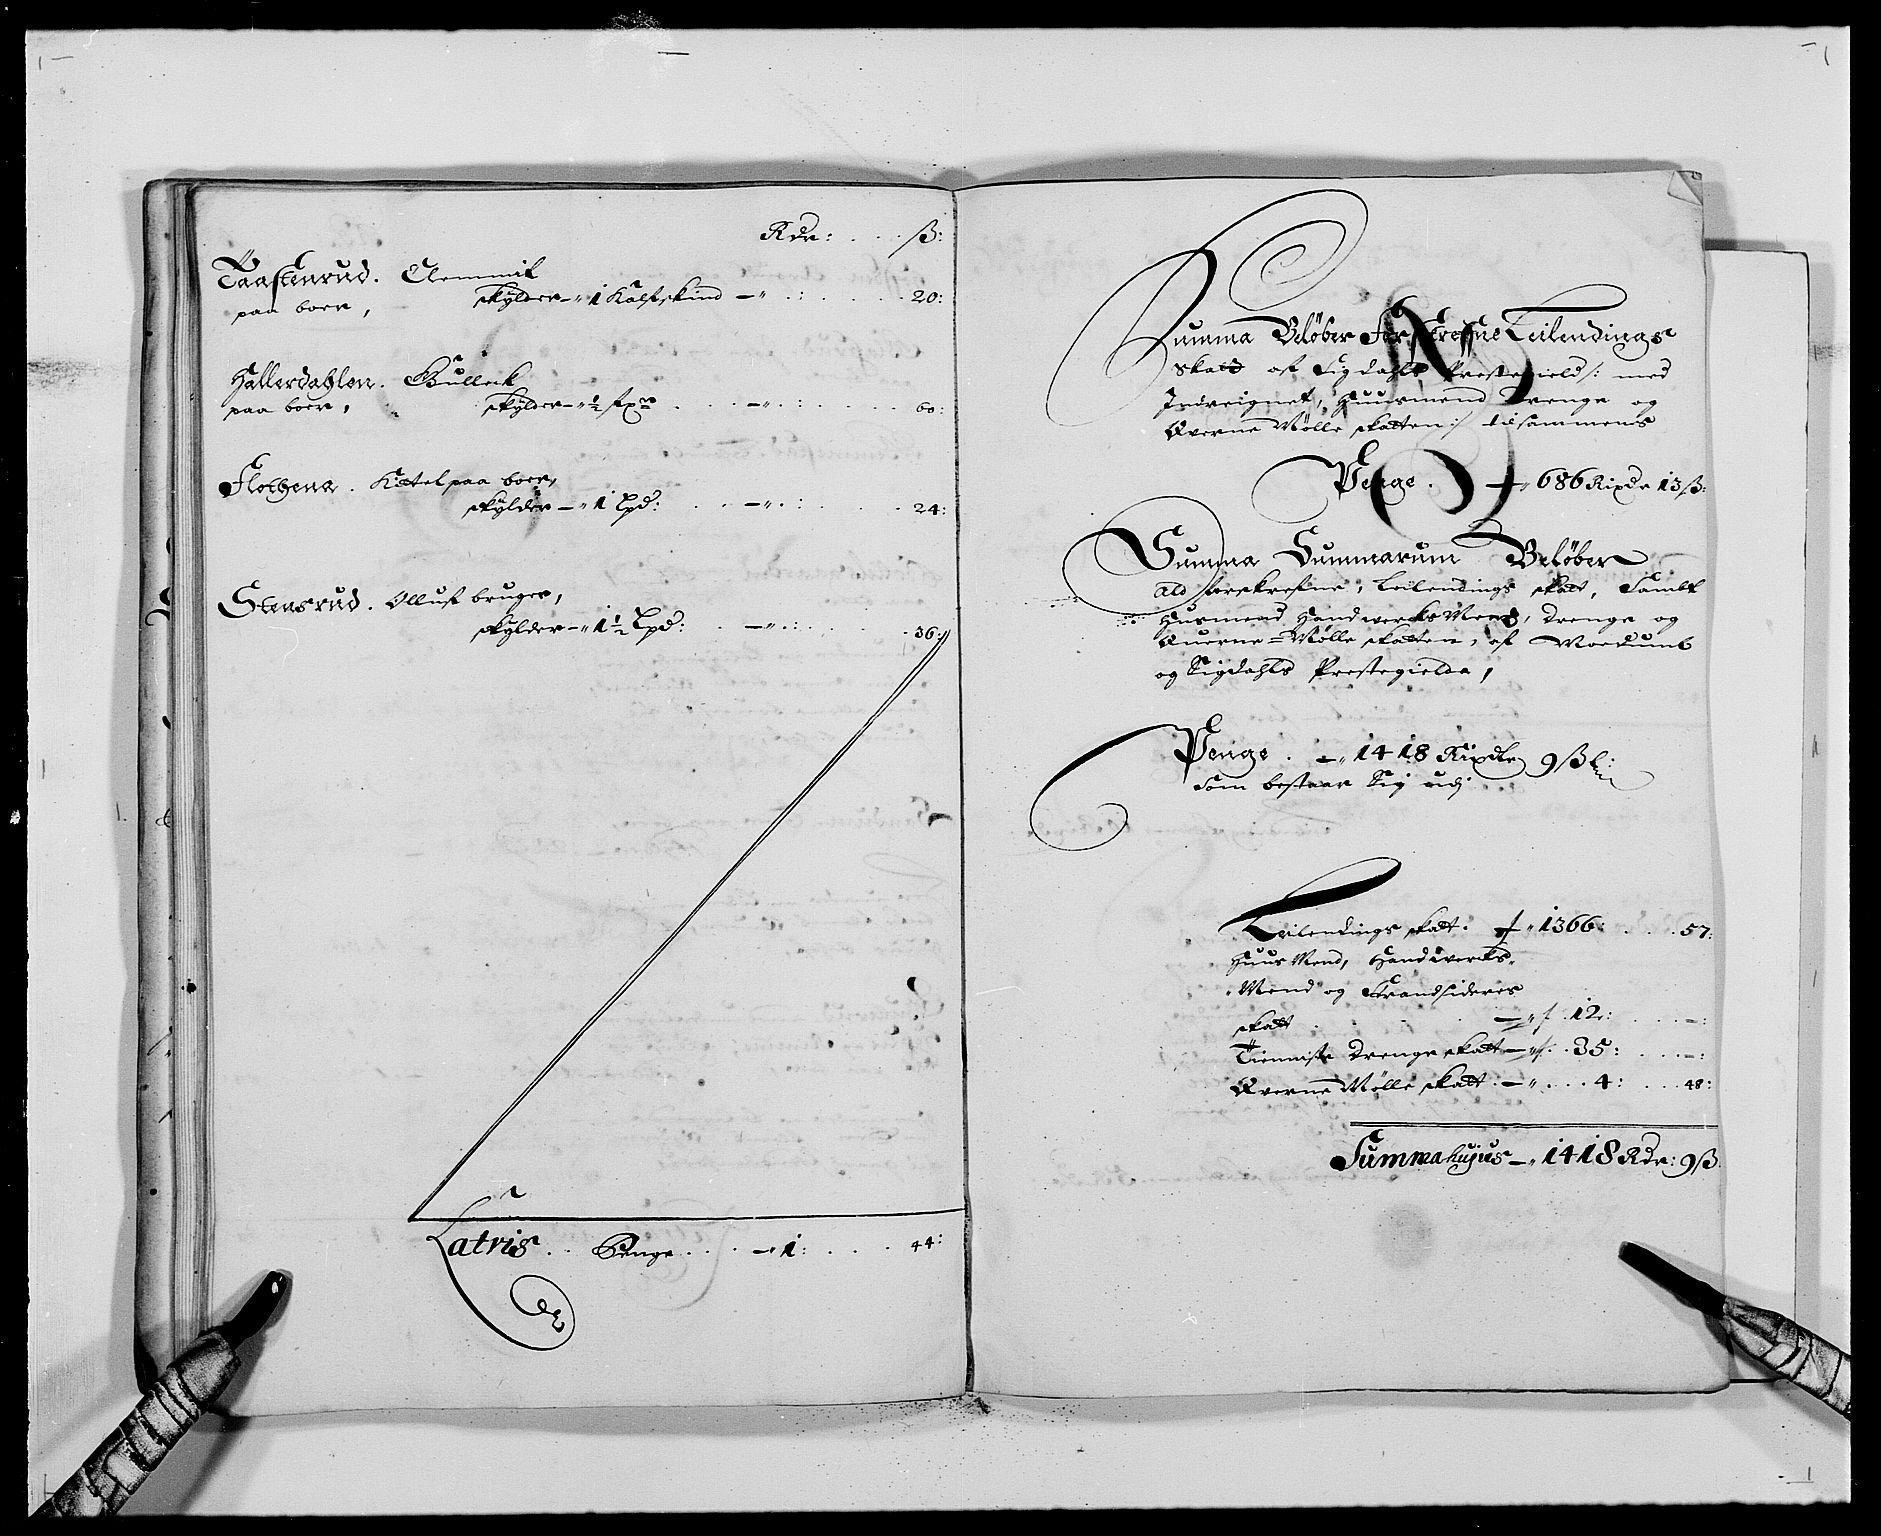 Rdr: . . . . ß:
Taastenrud. Clemmit
paa boer, skylder – „ 1 Kalfskind – „ . : . . . . 20:
Hallerdahlen. Gulleck
paa boer, skylder – „ ½ . . . – „ . : . . . . 60:
Flothena. Kittel paa boer,
skylder – „ 1 Lpd: . . . – „ . : . . . . 24:
Stensrud. Olluf bruger,
skylder – „ 1½ Lpd: . . – „ . : . . . 36:
Latris . . Penge . . . – „ 1: . . . . 44:
Summa Beløber Forskrefne Leilendings
Skatt af Sigdahls Prestegield /: med
Indreignet, Huusmend Drenge og
Qverne Mølle skatten :/ tilsammens
Penge . – „ 686 Rixdr 13 ß:
Summa Summarum Beløber
Ald forskrefne, Leilendings skatt, Sambt
Husmend Handwercks Mend, Drenge og
Querne = Mølle skatten, af Modumb
og Sigdahls Prestegielde,
Penge . – „ 1418 Rixdlr 9 ß
Som bestaar Sig udj
Leilendings skatt: – „ 1366: . . . 57:
Huus Mend, Handwercks-
Mend og Strandsideres
skatt . . . – „ . 12: . . . –:
Tienniste Drenge skatt – „ . . 35: . . . –:
Qverne Mølle skatt: – „ . . . 4: . . . 48:
Summa hujus – „ 1418 Rdr: 9 ß